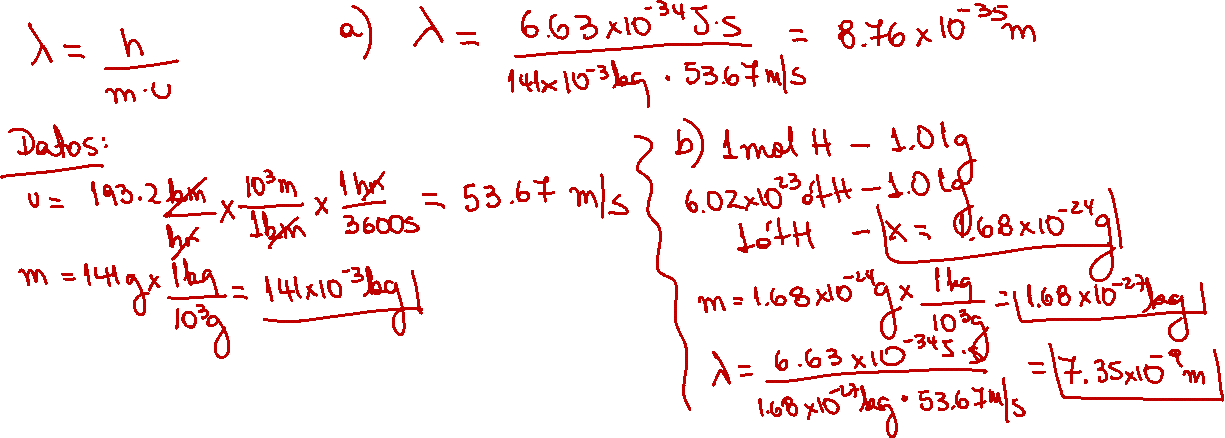 λ = h / m·υ
a) λ = 6.63×10⁻³⁴ J·s / 141×10⁻³ kg · 53.67 m/s = 8.76×10⁻³⁵ m
Datos:
υ = 193.2 km/hr × 10³m/1km × 1hr/3600s = 53.67 m/s
m = 141g × 1kg/10³g = 141×10⁻³ kg
b) 1mol H – 1.01g
6.02×10²³ át H – 1.01g
1 át H – x = 1.68×10⁻²⁴ g
m = 1.68×10⁻²⁴ g × 1kg/10³g = 1.68×10⁻²⁷ kg
λ = 6.63×10⁻³⁴ J·s / 1.68×10⁻²⁷ kg · 53.67 m/s = 7.35×10⁻⁹ m